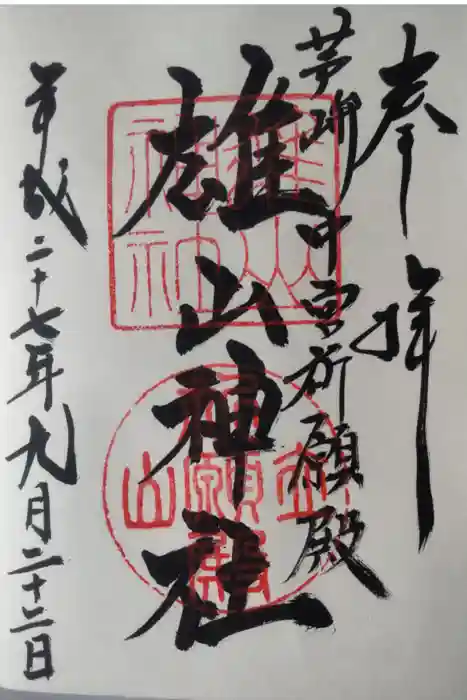 奉拝
芦峅中宮祈願殿
雄山神社
平成二十七年九月二十二日
雄山神社
立山祈願殿